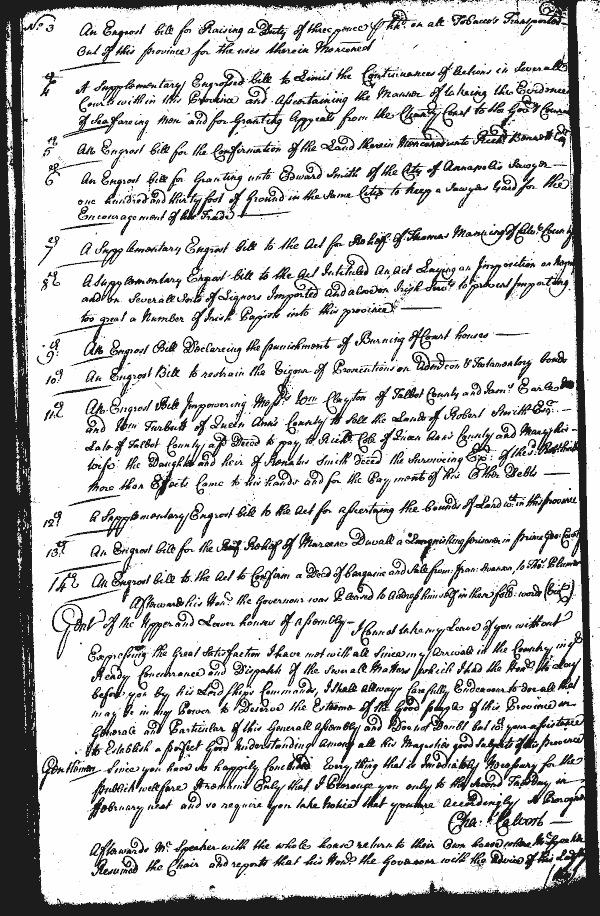 No 3 An Engrost bill for Raising a Duty of three pence ₱ hhd on all Tobacco's Transported
Out of this province for the uses therein Mencioned
4 A Supplementary Engrossed bill to Limit the Continuances of Actions in Severall
Courts within this Province and Ascertaining the Manner of takeing the Evidence
of Seafaring Men and for Granting Appeals from the County Court to the
5 An Engrost bill for the Confirmation of the Land therein Mencioned unto
6 An Engrost bill for Granting unto Edward Smith of the City of Annapolis Sawyer
one hundred and thirty foot of Ground in the Same City to keep a Sawyers Yard for the
Encouragement of his Trade
7 A Supplementary Engrost bill to the Act for Releif of Thomas Manning of County
8 A Supplementary Engrost bill to the Act Intituled An Act Laying an Imposition on
and on Severall Sorts of Liquors Imported and also on Irish Servts to prevent Importing
too great a Number of Irish Papists into this province
9 An Engrost Bill Declareing the punishment of Burning of Court houses
10 An Engrost Bill to restrain the Rigour of Executions on Admicon & Testamentary bonds
11 An Engrost Bill Impowering Messrs Wm Clayton of Talbot County and
and Wm Turbutt of Queen Anns County to Sell the Lands of Robert Smith Esqr
Late of Talbot County Decd to pay to Richd Cole of Queen Anns County and Mary his
wife the Daughter and heir of Renatus Smith deced the Surviveing Exr of the
more than Effects Came to his hands and for the Payment of his Other Debts
12 A Supplementary Engrost bill to the Act for ascertaining the bounds of Land wthin this province
13 An Engrost bill for the Releif of Mareen Duvall a Languishing prisoner in Prince Geo: County
14 An Engrost bill to the Act to Confirm a Deed of bargaine and Sale from to
Afterwards his Honr the Governour was Pleased to Adress himself in these foll: words (vizt)
Gent of the Upper and Lower houses of assembly I Cannot take my Leave of you without
Expressing the Great Satisfaction I have met with all Since my Arrivale in the Country in yr
Ready Concurrance and Dispatch of the severall Matters which I had the Honr to Lay
before you by his Lordships Commands, I shall allways Carefully Endeavour to doe all that
may be in my Power to Deserve the Esteeme of the Good people of this Province in
Generale and Particular of this Generall Assembly and Doe not Doubt but wth your assistance
to Establish a perfect Good understanding Among all his Majesties good Subjects of this province
Gentlemen Since you have so happily Concluded Every thing that is Immediately Necessary for the
publick wellfare it remains Only that I Prorogue you only to the second Tuesday in
February next and so require you take Notice that you are accordingly So Prorogued
Cha: Calvert
Afterwards Mr Speaker with the whole house return to their Own house where Mr Speaker
Resumed the Chair and reports that his Honr the Governor with the Advice of his Ldsp